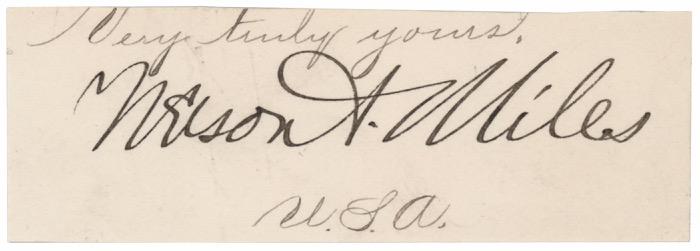 Very truly yours,
Nelson A. Miles
U.S.A.